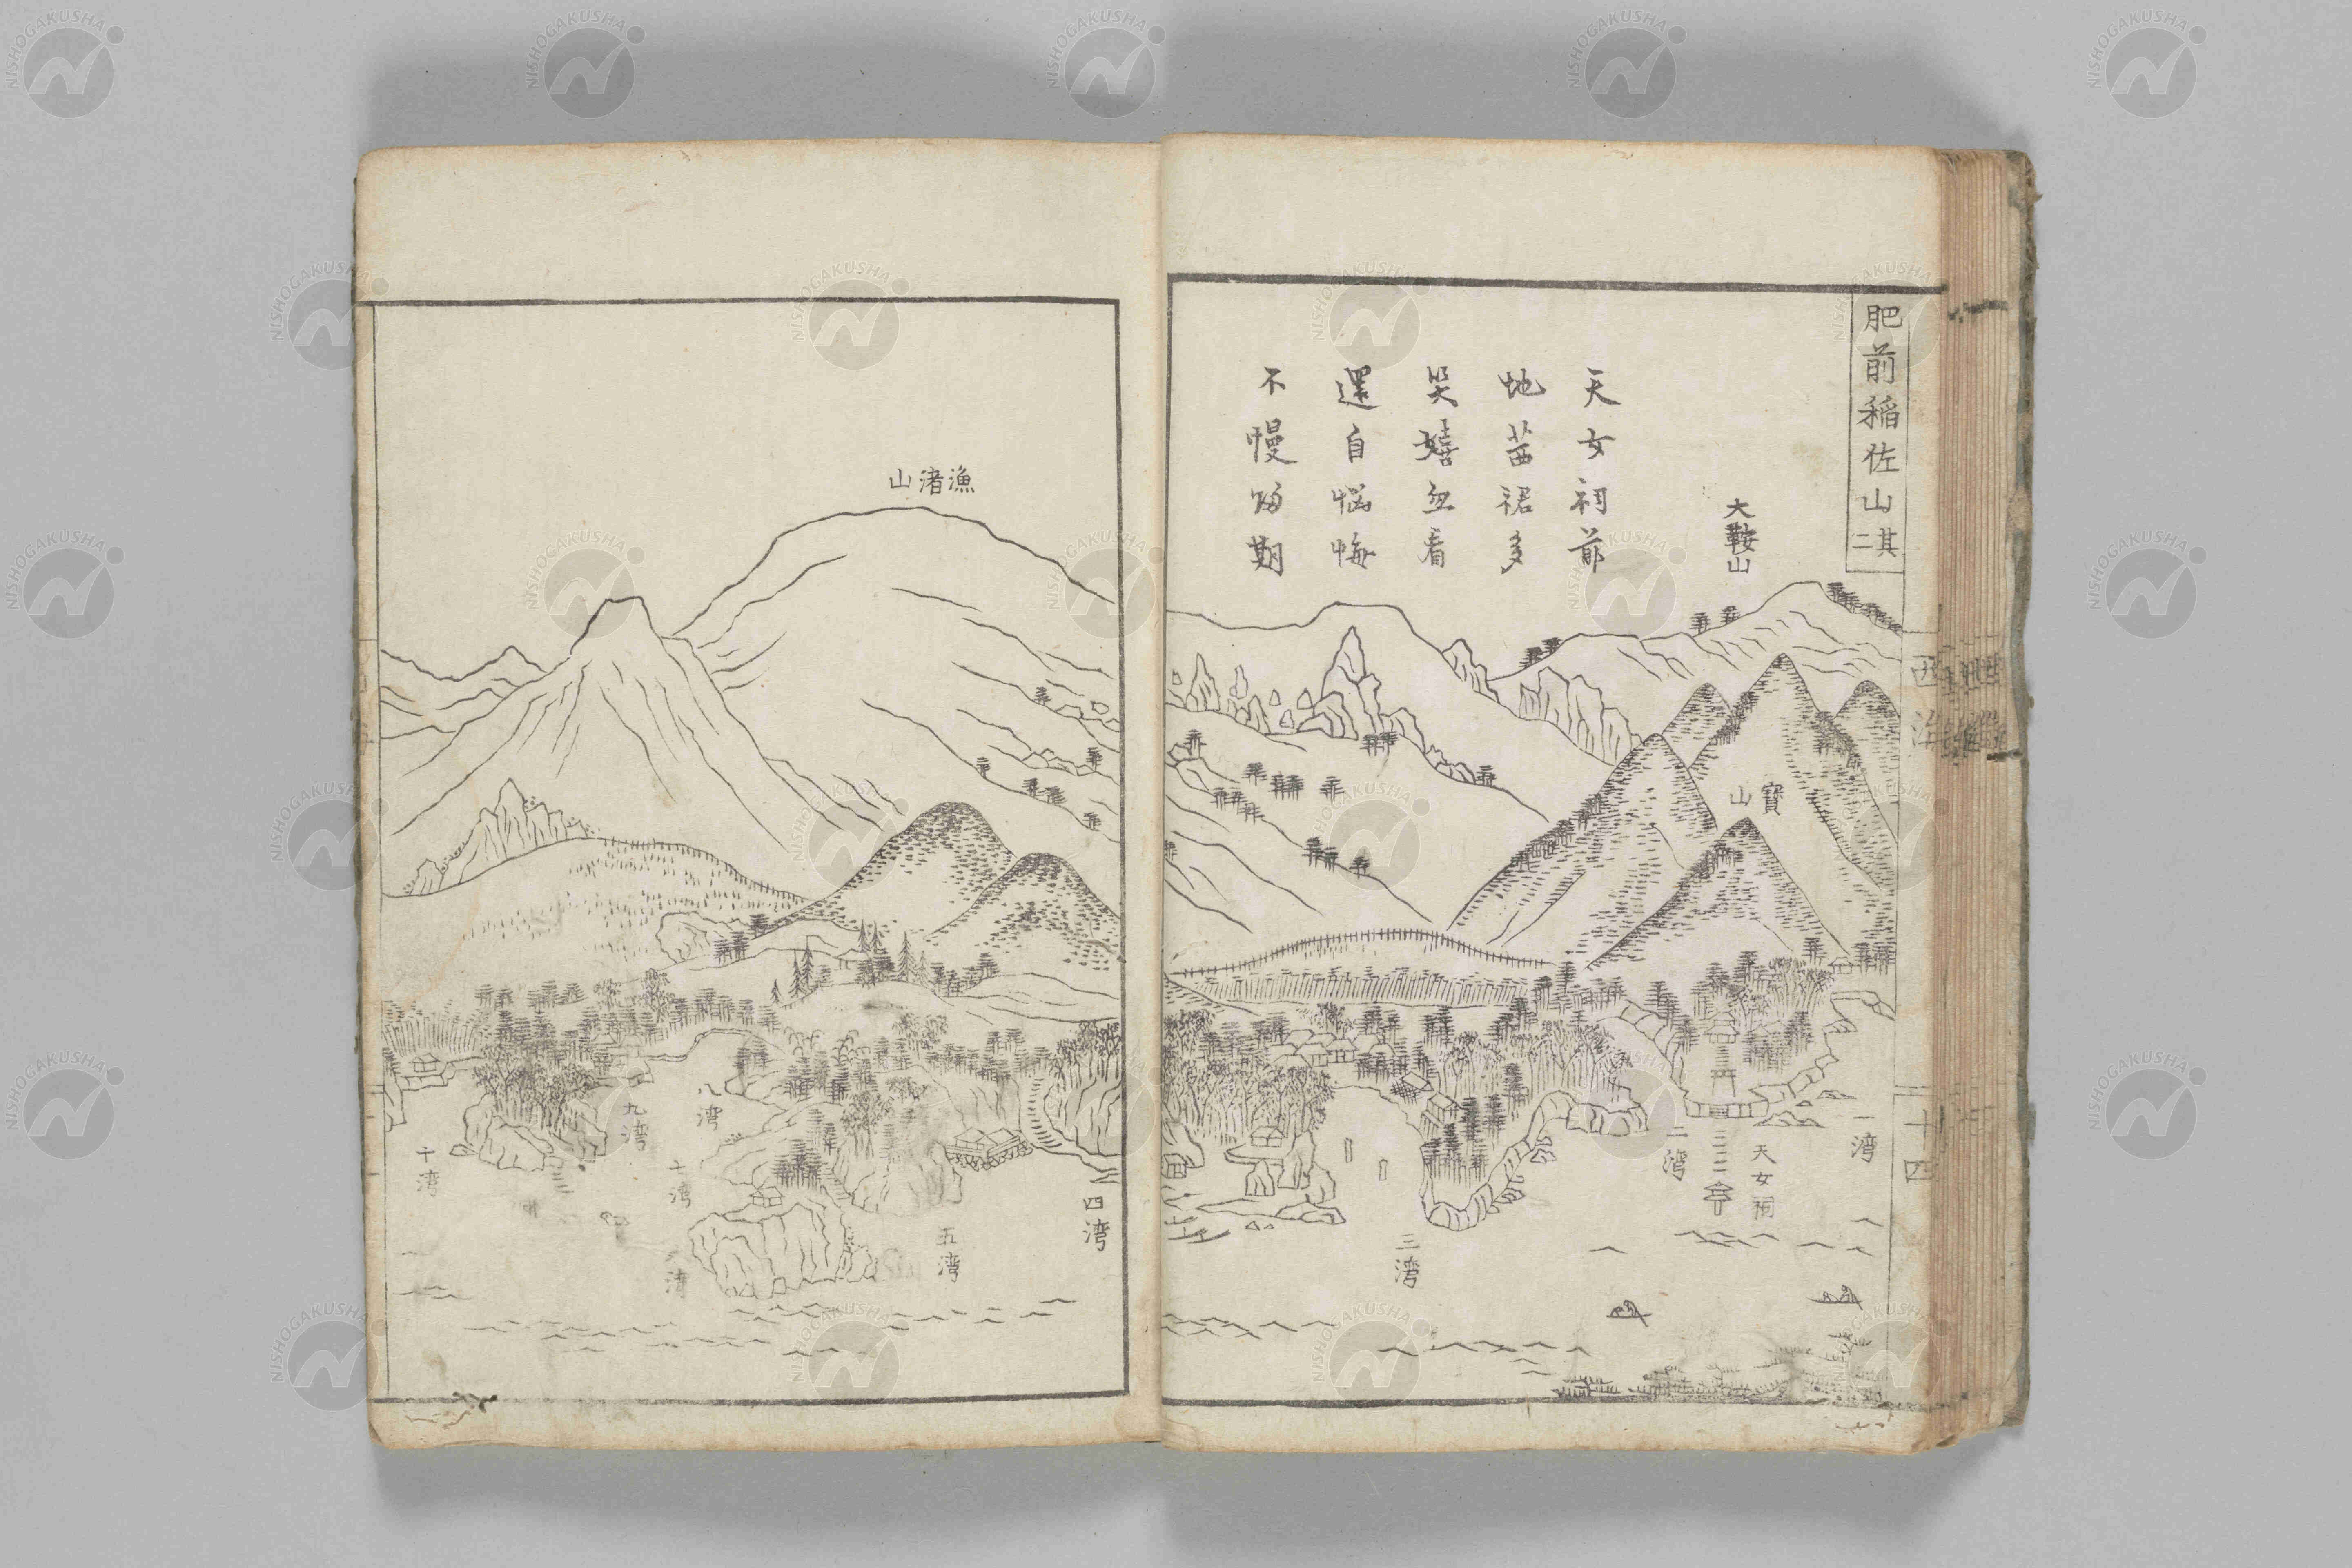 肥前稲佐山 其二
大鞍山
天女祠前
地苗裙多
笑嬉忽看
還自悩悔
不慢歸期
寶山
一湾
天女祠
二湾
三湾
十四
漁渚山
四湾
五湾
七湾
八湾
九湾
十湾
NISHOGAKUSHA